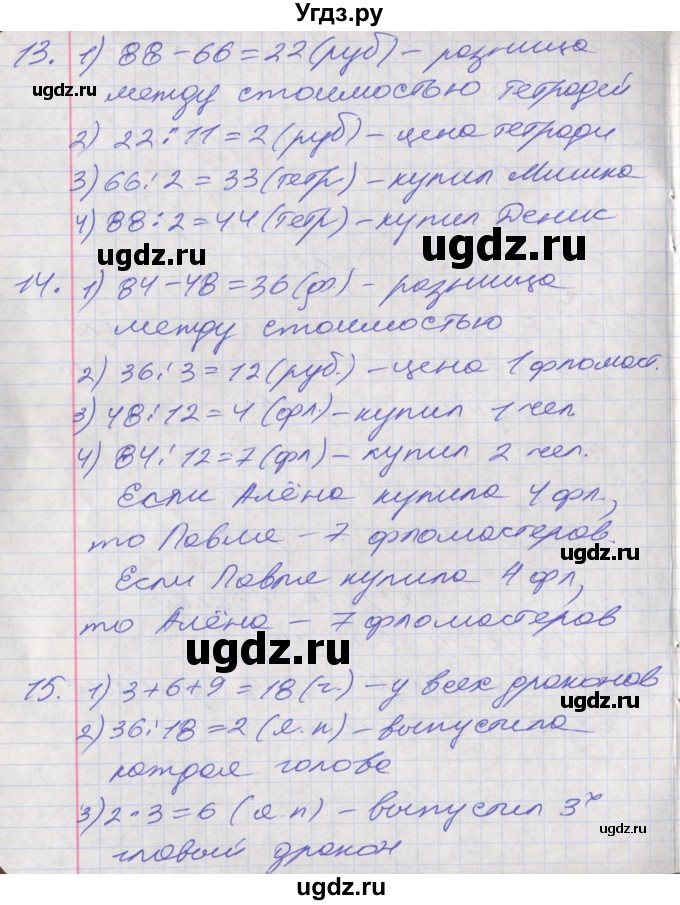 Угдз.ру
13. 1) 88 - 66 = 22 (руб) - разница
между стоимостью тетрадей
2) 22 : 11 = 2 (руб) - цена тетради
3) 66 : 2 = 33 (тетр) - купил Мишка
4) 88 : 2 = 44 (тетр) - купил Денис
ugdz.ru
ugdz.ru
14. 1) 84 - 48 = 36 (ф) - разница
между стоимостью
2) 36 : 3 = 12 (руб.) - цена 1 фломаст.
3) 48 : 12 = 4 (фл.) - купил 1 чел
ugdz.ru
4) 84 : 12 = 7 (фл) - купил 2 чел.
Если Алёна купила 4 фл.,
то Павля - 7 фломастеров.
ugdz.ru
Если Павля купила 4 фл,
то Алёна - 7 фломастеров
ugdz.ru
15. 1) 3 + 6 + 9 = 18 (г.) - у всех драконов
2) 36 : 18 = 2 (я.п) - выпустила
каждая голова
3) 2 · 3 = 6 (я.п) - выпустил 3х
ugdz.ru
главый дракон
ugdz.ru